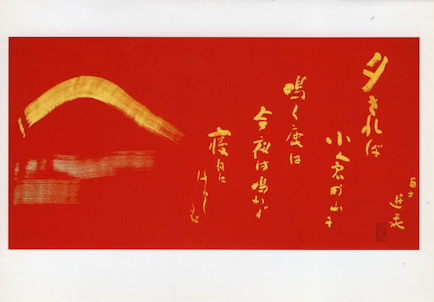 夕されば
小倉の山に
鳴く鹿は
今夜は鳴かず
寝ねに
けらしも